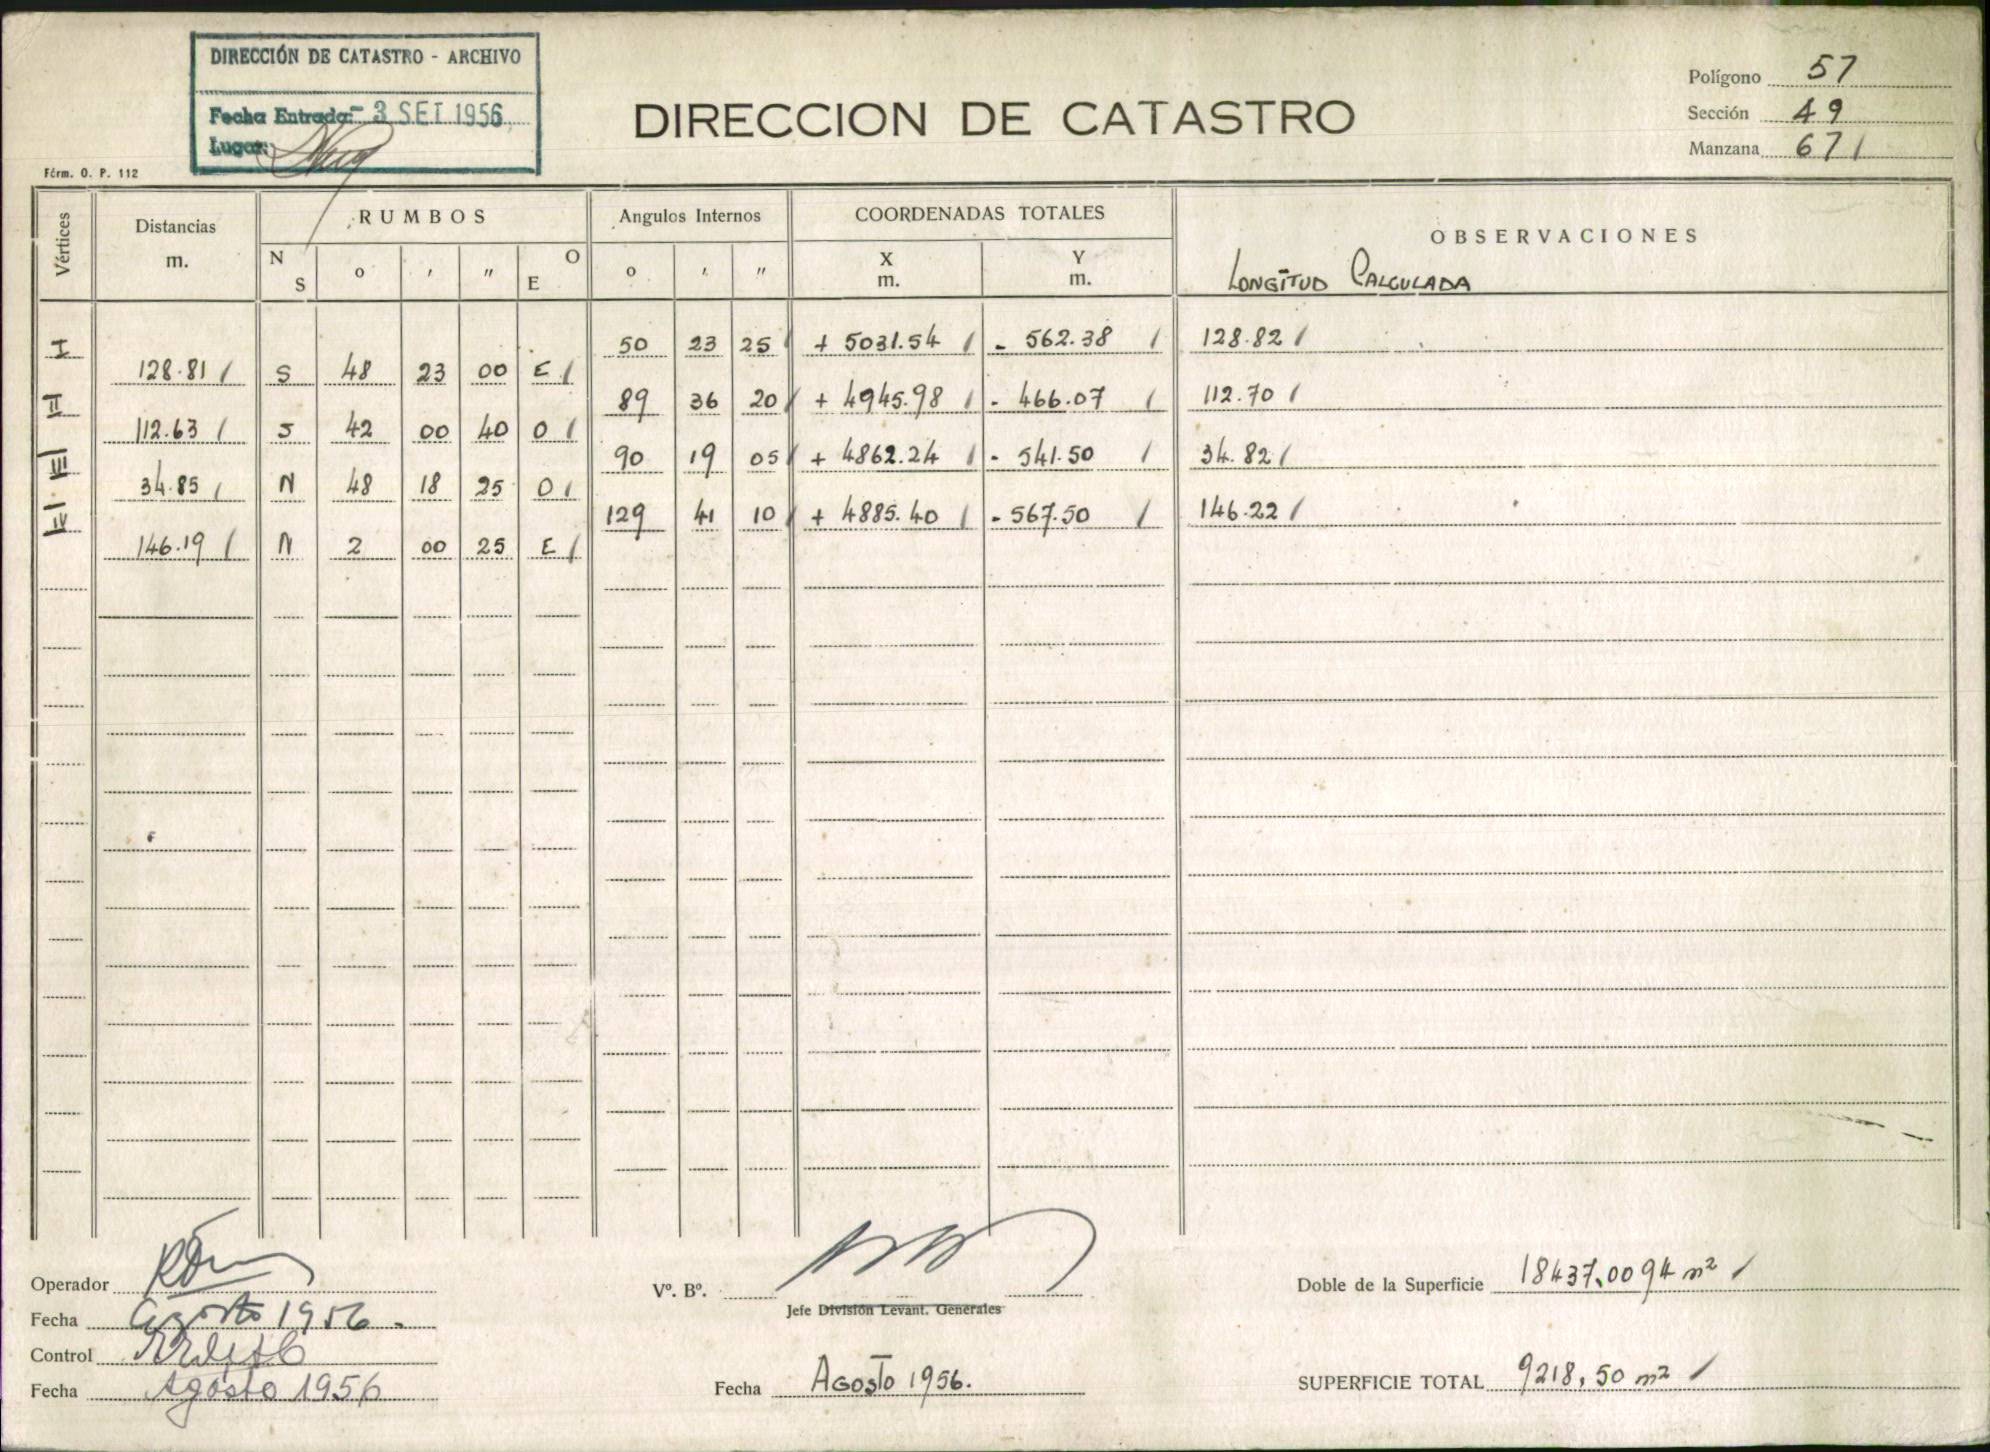 DIRECCIÓN DE CATASTRO - ARCHIVO
Fecha Entrada: - 3 SET 1956
Lugar:
DIRECCION DE CATASTRO
Polígono 57
Sección 49
Manzana 671
Fórm. O. P. 112
Vértices Distancias m. RUMBOS Angulos Internos COORDENADAS TOTALES OBSERVACIONES
N S o ' " O E o ' " X m. Y m. LONGITUD CALCULADA
I 50 23 25 + 5031.54 - 562.38 128.82
128.81 S 48 23 00 E
II 89 36 20 + 4945.98 - 466.07 112.70
112.63 S 42 00 40 O
III 90 19 05 + 4862.24 - 541.50 34.82
34.85 N 48 18 25 O
IV 129 41 10 + 4885.40 - 567.50 146.22
146.19 N 2 00 25 E
Operador
Fecha Agosto 1956.
Control
Fecha Agosto 1956
Vº. Bº.
Jefe División Levant. Generales
Fecha AGOSTO 1956.
Doble de la Superficie 18437,0094 m²
SUPERFICIE TOTAL 9218,50 m²